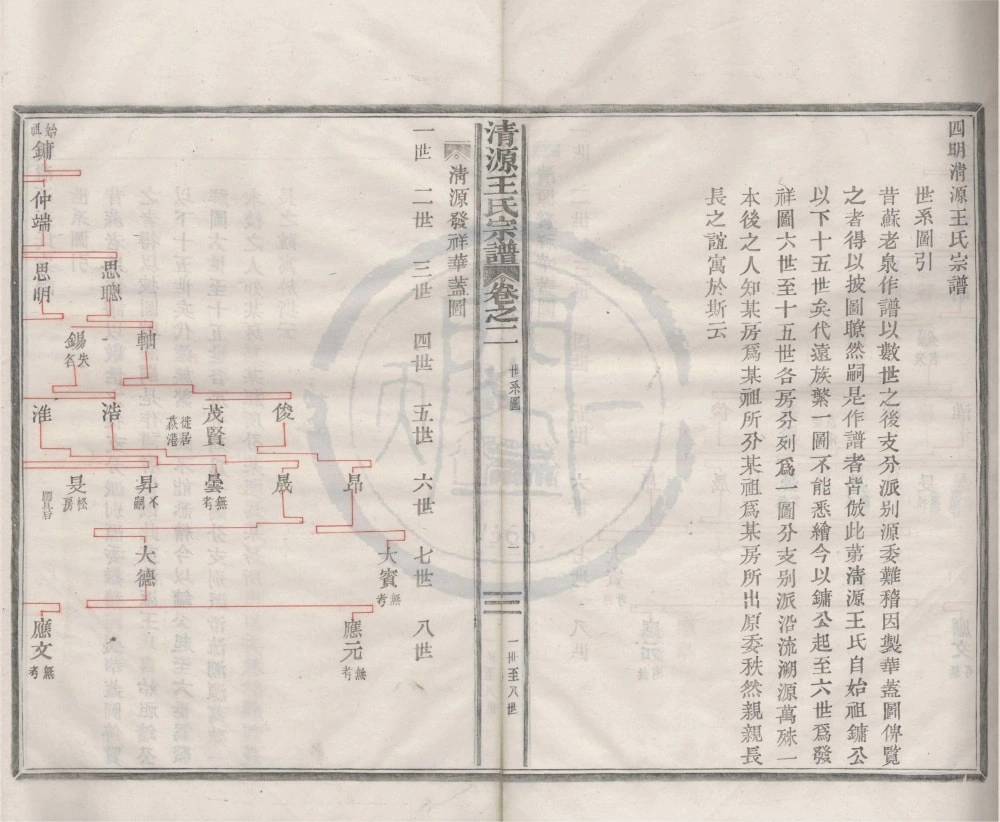 四明清源王氏宗譜
世系圖引
昔蘇老泉作譜以數世之後支分派別源委難稽因製華蓋圖俾覽
之者得以披圖瞭然嗣是作譜者皆倣此第清源王氏自始祖鏞公
以下十五世矣代遠族繁一圖不能悉繪今以鏞公起至六世爲發
祥圖六世至十五世各房分列爲一圖分支別派沿流溯源萬殊一
本後之人知某房爲某祖所分某祖爲某房所出原委秩然親親長
長之誼寓於斯云
清源王氏宗譜
卷之二
世系圖
二
一世至八世
清源發祥華蓋圖
一世 二世 三世 四世 五世 六世 七世 八世
大賓 無考
昂
應元 無考
俊
晟
茂賢 徙居荻港
曇 無考
思聰
軸
浩
昇 不嗣
大德
錫 失名
旻 松房
始祖 鏞
仲端
思明
淮
應文 無考